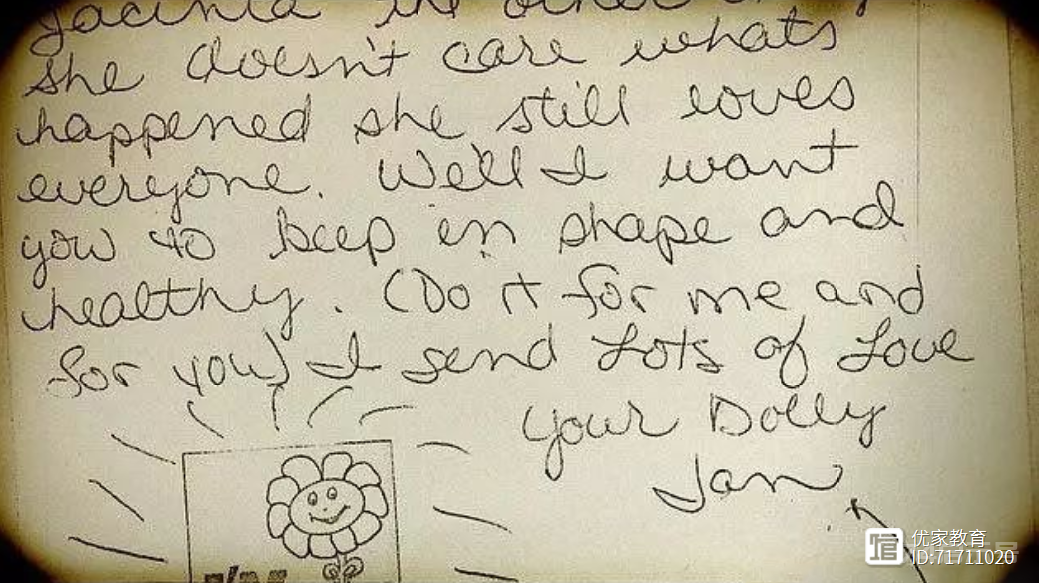 Jacinta the other
she doesn't care whats
happened she still loves
everyone. We'll I want
you to keep in shape and
healthy. (Do it for me and
for you) I send Lots of Love
your Dolly
Jan
优家教育
ID:71711020